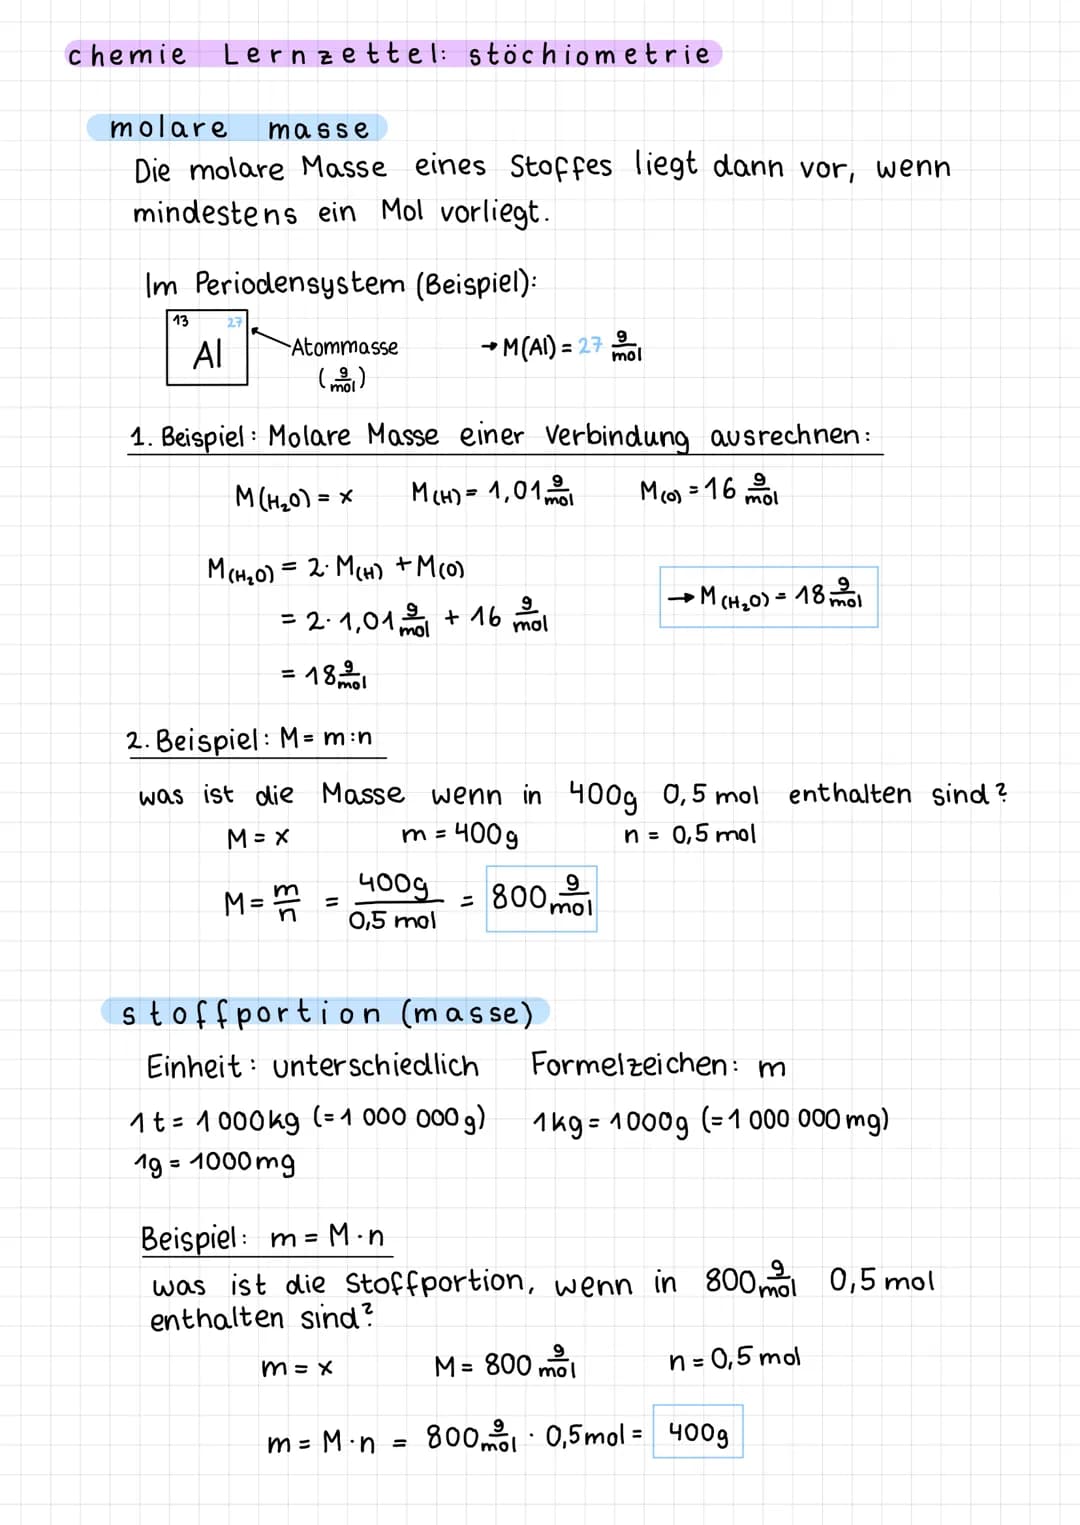 chemie Lernzettel: stöchiometrie
molare masse
Die molare Masse eines Stoffes liegt dann vor, wenn
mindestens ein Mol vorliegt.
Im Periodensystem (Beispiel):
13 27
Al
Atommasse
(g/mol)
→ M(Al) = 27 g/mol
1. Beispiel: Molare Masse einer Verbindung ausrechnen:
M(H₂O) = x M(H) = 1,01 g/mol M(O) = 16 g/mol
M(H₂O) = 2· M(H) + M(O)
= 2· 1,01 g/mol + 16 g/mol
= 18 g/mol
→ M(H₂O) = 18 g/mol
2. Beispiel: M = m:n
was ist die Masse wenn in 400g 0,5 mol enthalten sind?
M = x m = 400g n = 0,5 mol
M = m/n = 400g/0,5 mol = 800 g/mol
stoffportion (masse)
Einheit: unterschiedlich Formelzeichen: m
1t = 1 000kg (=1 000 000g) 1kg = 1000g (=1 000 000mg)
1g = 1000mg
Beispiel: m = M·n
was ist die Stoffportion, wenn in 800 g/mol 0,5 mol
enthalten sind?
m = x M = 800 g/mol n = 0,5 mol
m = M·n = 800 g/mol · 0,5mol = 400g